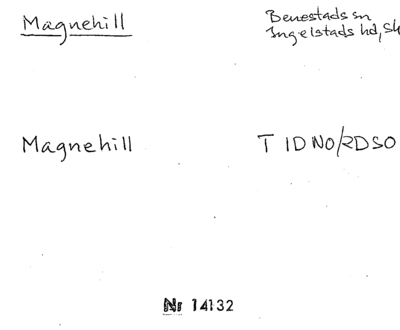 Magnehill
Benestads sn
Ingelstads hd, Sk
Magnehill
T IDNO/2DSO
Nr 14132